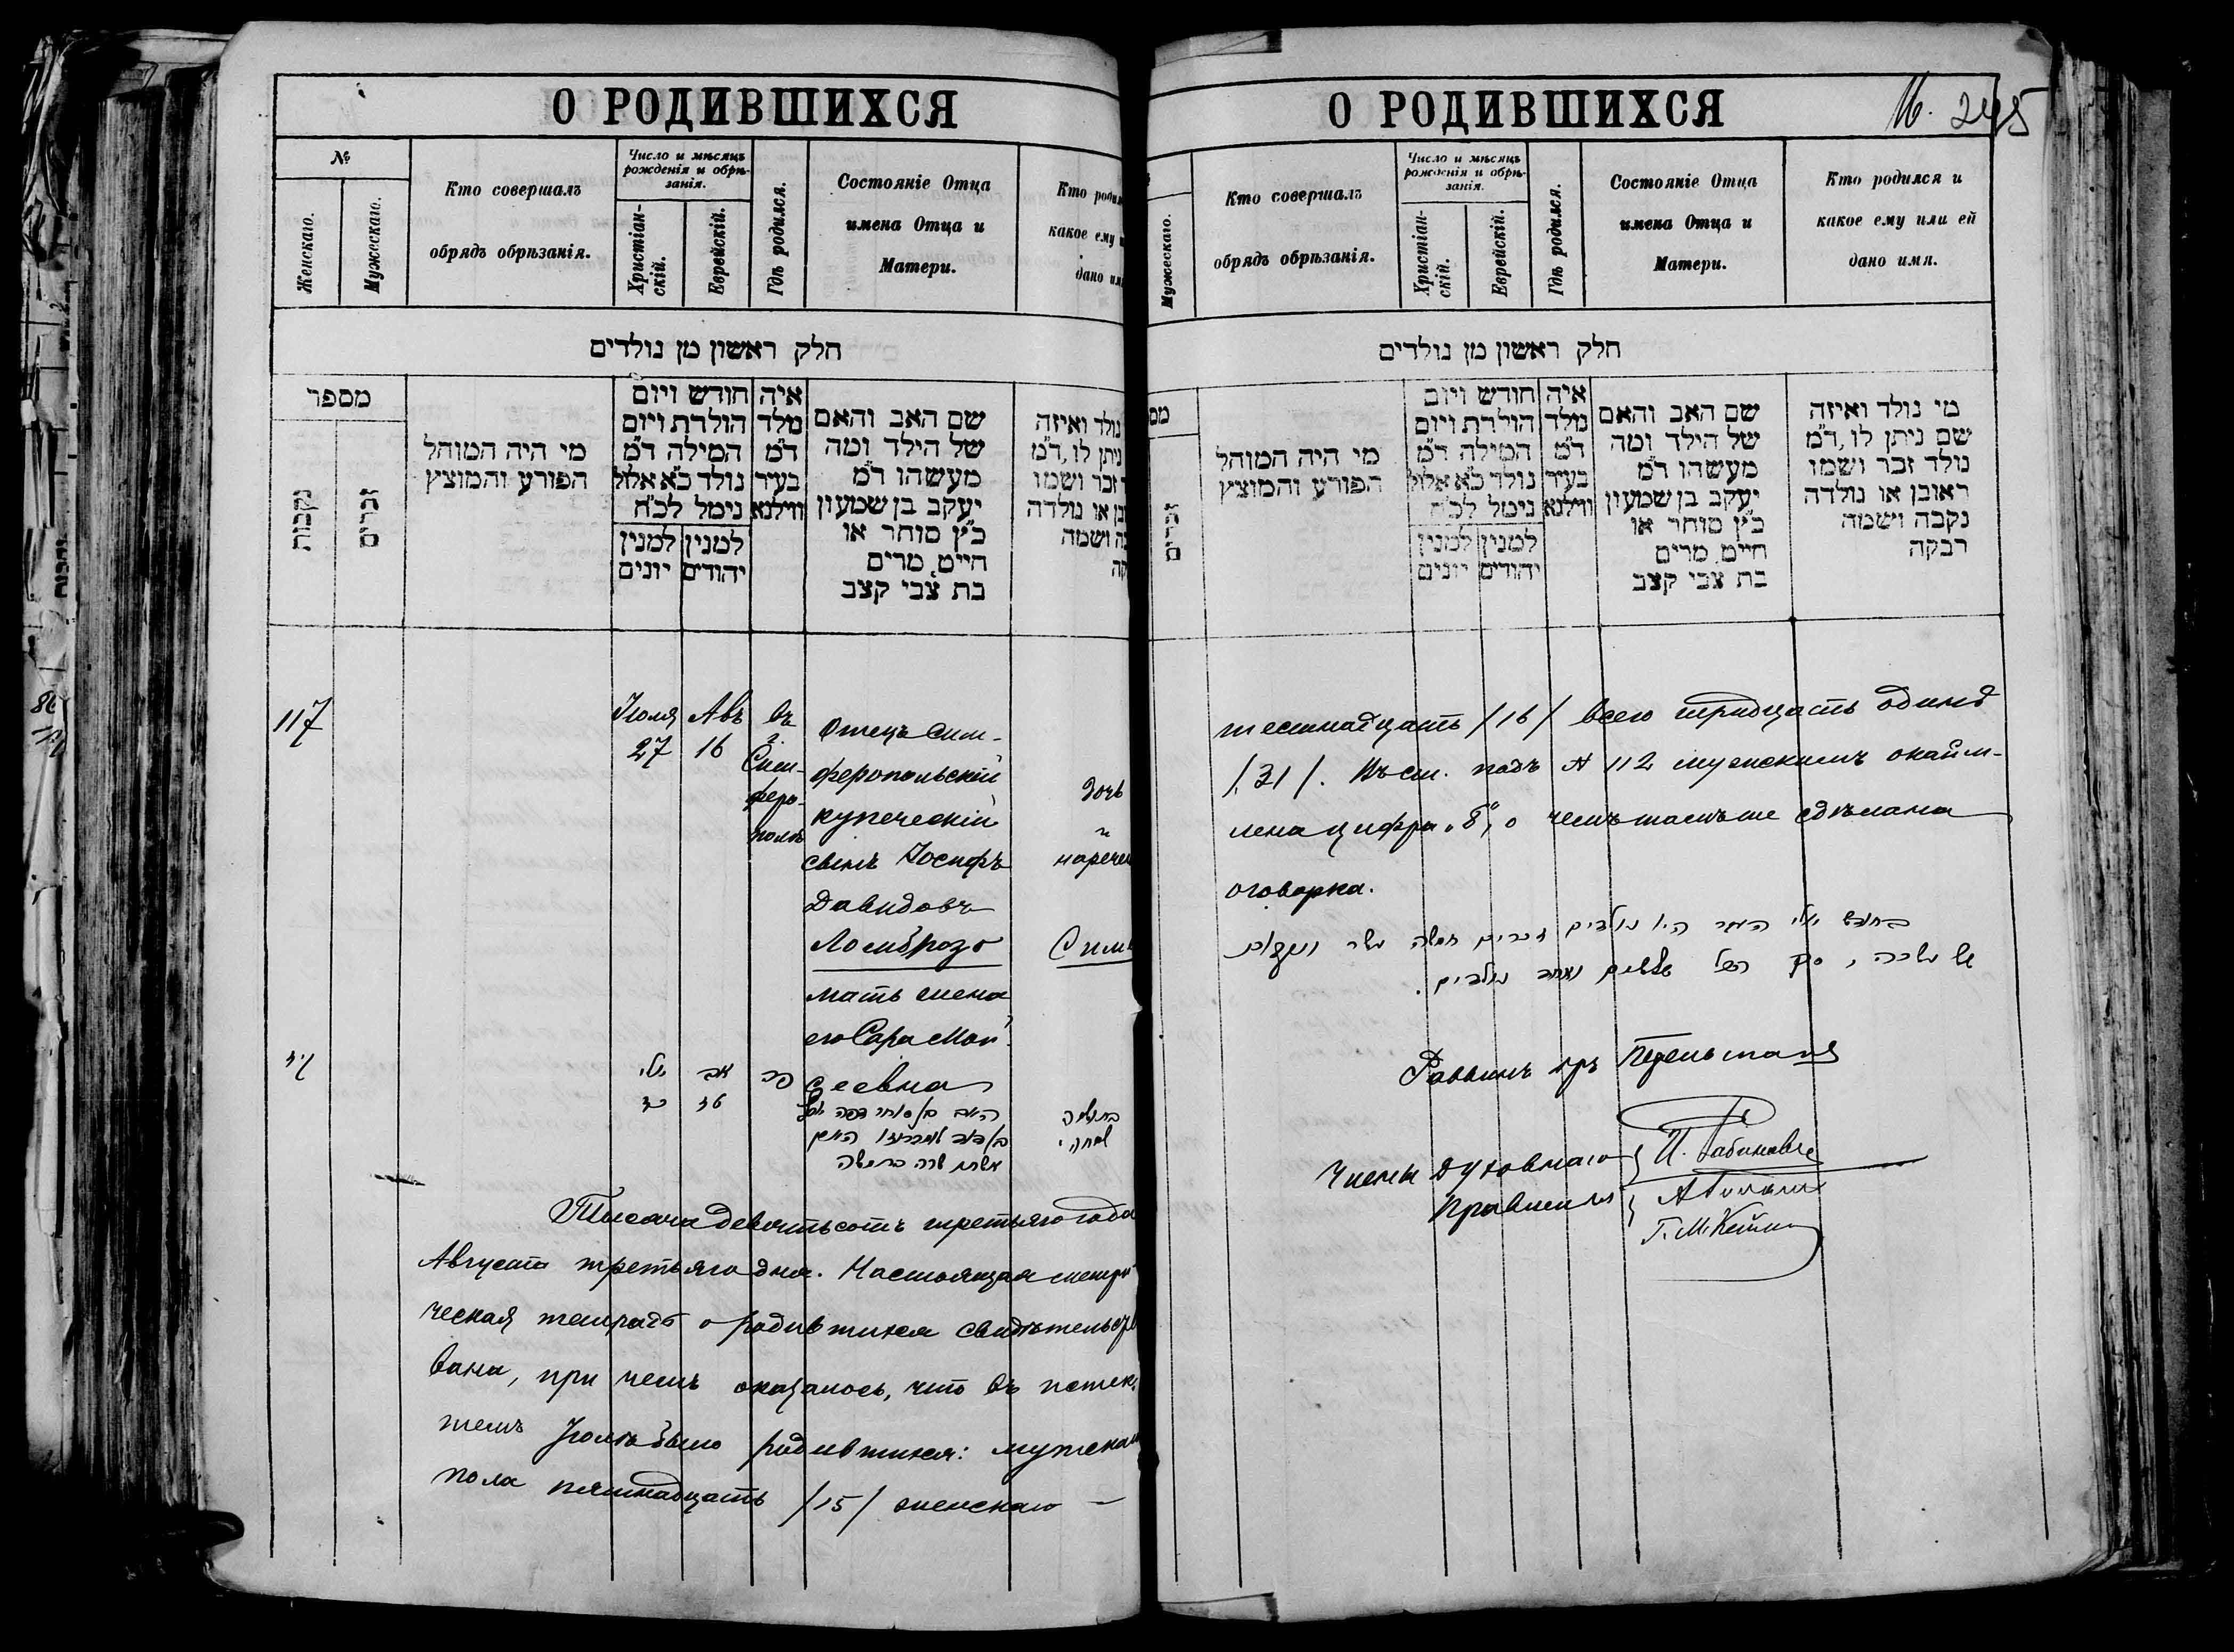 О РОДИВШИХСЯ
№
Женскаго.
Мужескаго.
Кто совершалъ
обрядъ обрѣзанія.
Число и мѣсяцъ
рожденія и обрѣ-
занія.
Христіан-
скій.
Еврейскій.
Гдѣ родился.
Состояніе Отца
имена Отца и
Матери.
Кто
какое ему
дано
חלק ראשון מן נולדים
מספר
נקבות
זכרים
מי היה המוהל
הפורע והמוצץ
איה חודש ויום
מלד הולדת ויום
ד״מ המילה ד״מ
בעיר נולד כ״א אלול
ווילנא נימל לכ״ח
למנין למנין
יהודים יונים
שם האב והאם
של הילד ומה
מעשהו ד״מ
יעקב בן שמעון
כ״ץ סוחר או
חיים, מרים
בת צבי קצב
נולד ואיזה
ניתן לו, ד״מ
זכר ושמו
או נולדה
ושמה
117
Іюля
27
Авъ
16
въ
г.
Сим-
феро-
полѣ
Отецъ Сим-
феропольскій
купеческій
сынъ Іосифъ
Давидовъ
Ломброзо
мать жена
его Сара Мои-
сеевна
дочь
нарече
Сим
קיז
יולי
כז
אב
טז
פה
Тысяча девятьсотъ третьяго года
Августа третьяго дня. Настоящая метри-
ческая тетрадь о родившихся свидѣтельство
вана, при чемъ оказалось, что въ истек-
шемъ Іюлѣ было родившихся: мужскаго
пола пятнадцать /15/ женскаго –
О РОДИВШИХСЯ
245
Мужескаго.
Кто совершалъ
обрядъ обрѣзанія.
Число и мѣсяцъ
рожденія и обрѣ-
занія.
Христіан-
скій.
Еврейскій.
Гдѣ родился.
Состояніе Отца
имена Отца и
Матери.
Кто родился и
какое ему или ей
дано имя.
חלק ראשון מן נולדים
זכרים
מי היה המוהל
הפורע והמוצץ
איה חודש ויום
מלד הולדת ויום
ד״מ המילה ד״מ
בעיר נולד כ״א אלול
ווילנא נימל לכ״ח
למנין למנין
יהודים יונים
שם האב והאם
של הילד ומה
מעשהו ד״מ
יעקב בן שמעון
כ״ץ סוחר או
חיים, מרים
בת צבי קצב
מי נולד ואיזה
שם ניתן לו, ד״מ
נולד זכר ושמו
ראובן או נולדה
נקבה ושמה
רבקה
шестнадцать /16/ всего тридцать одинъ
/31/. Въ ст. подъ № 112 мужскимъ окайм-
лена цифра „8“, о чемъ тамъ же сдѣлана
оговорка.
Раввинъ
Члены Духовнаго
Правленія